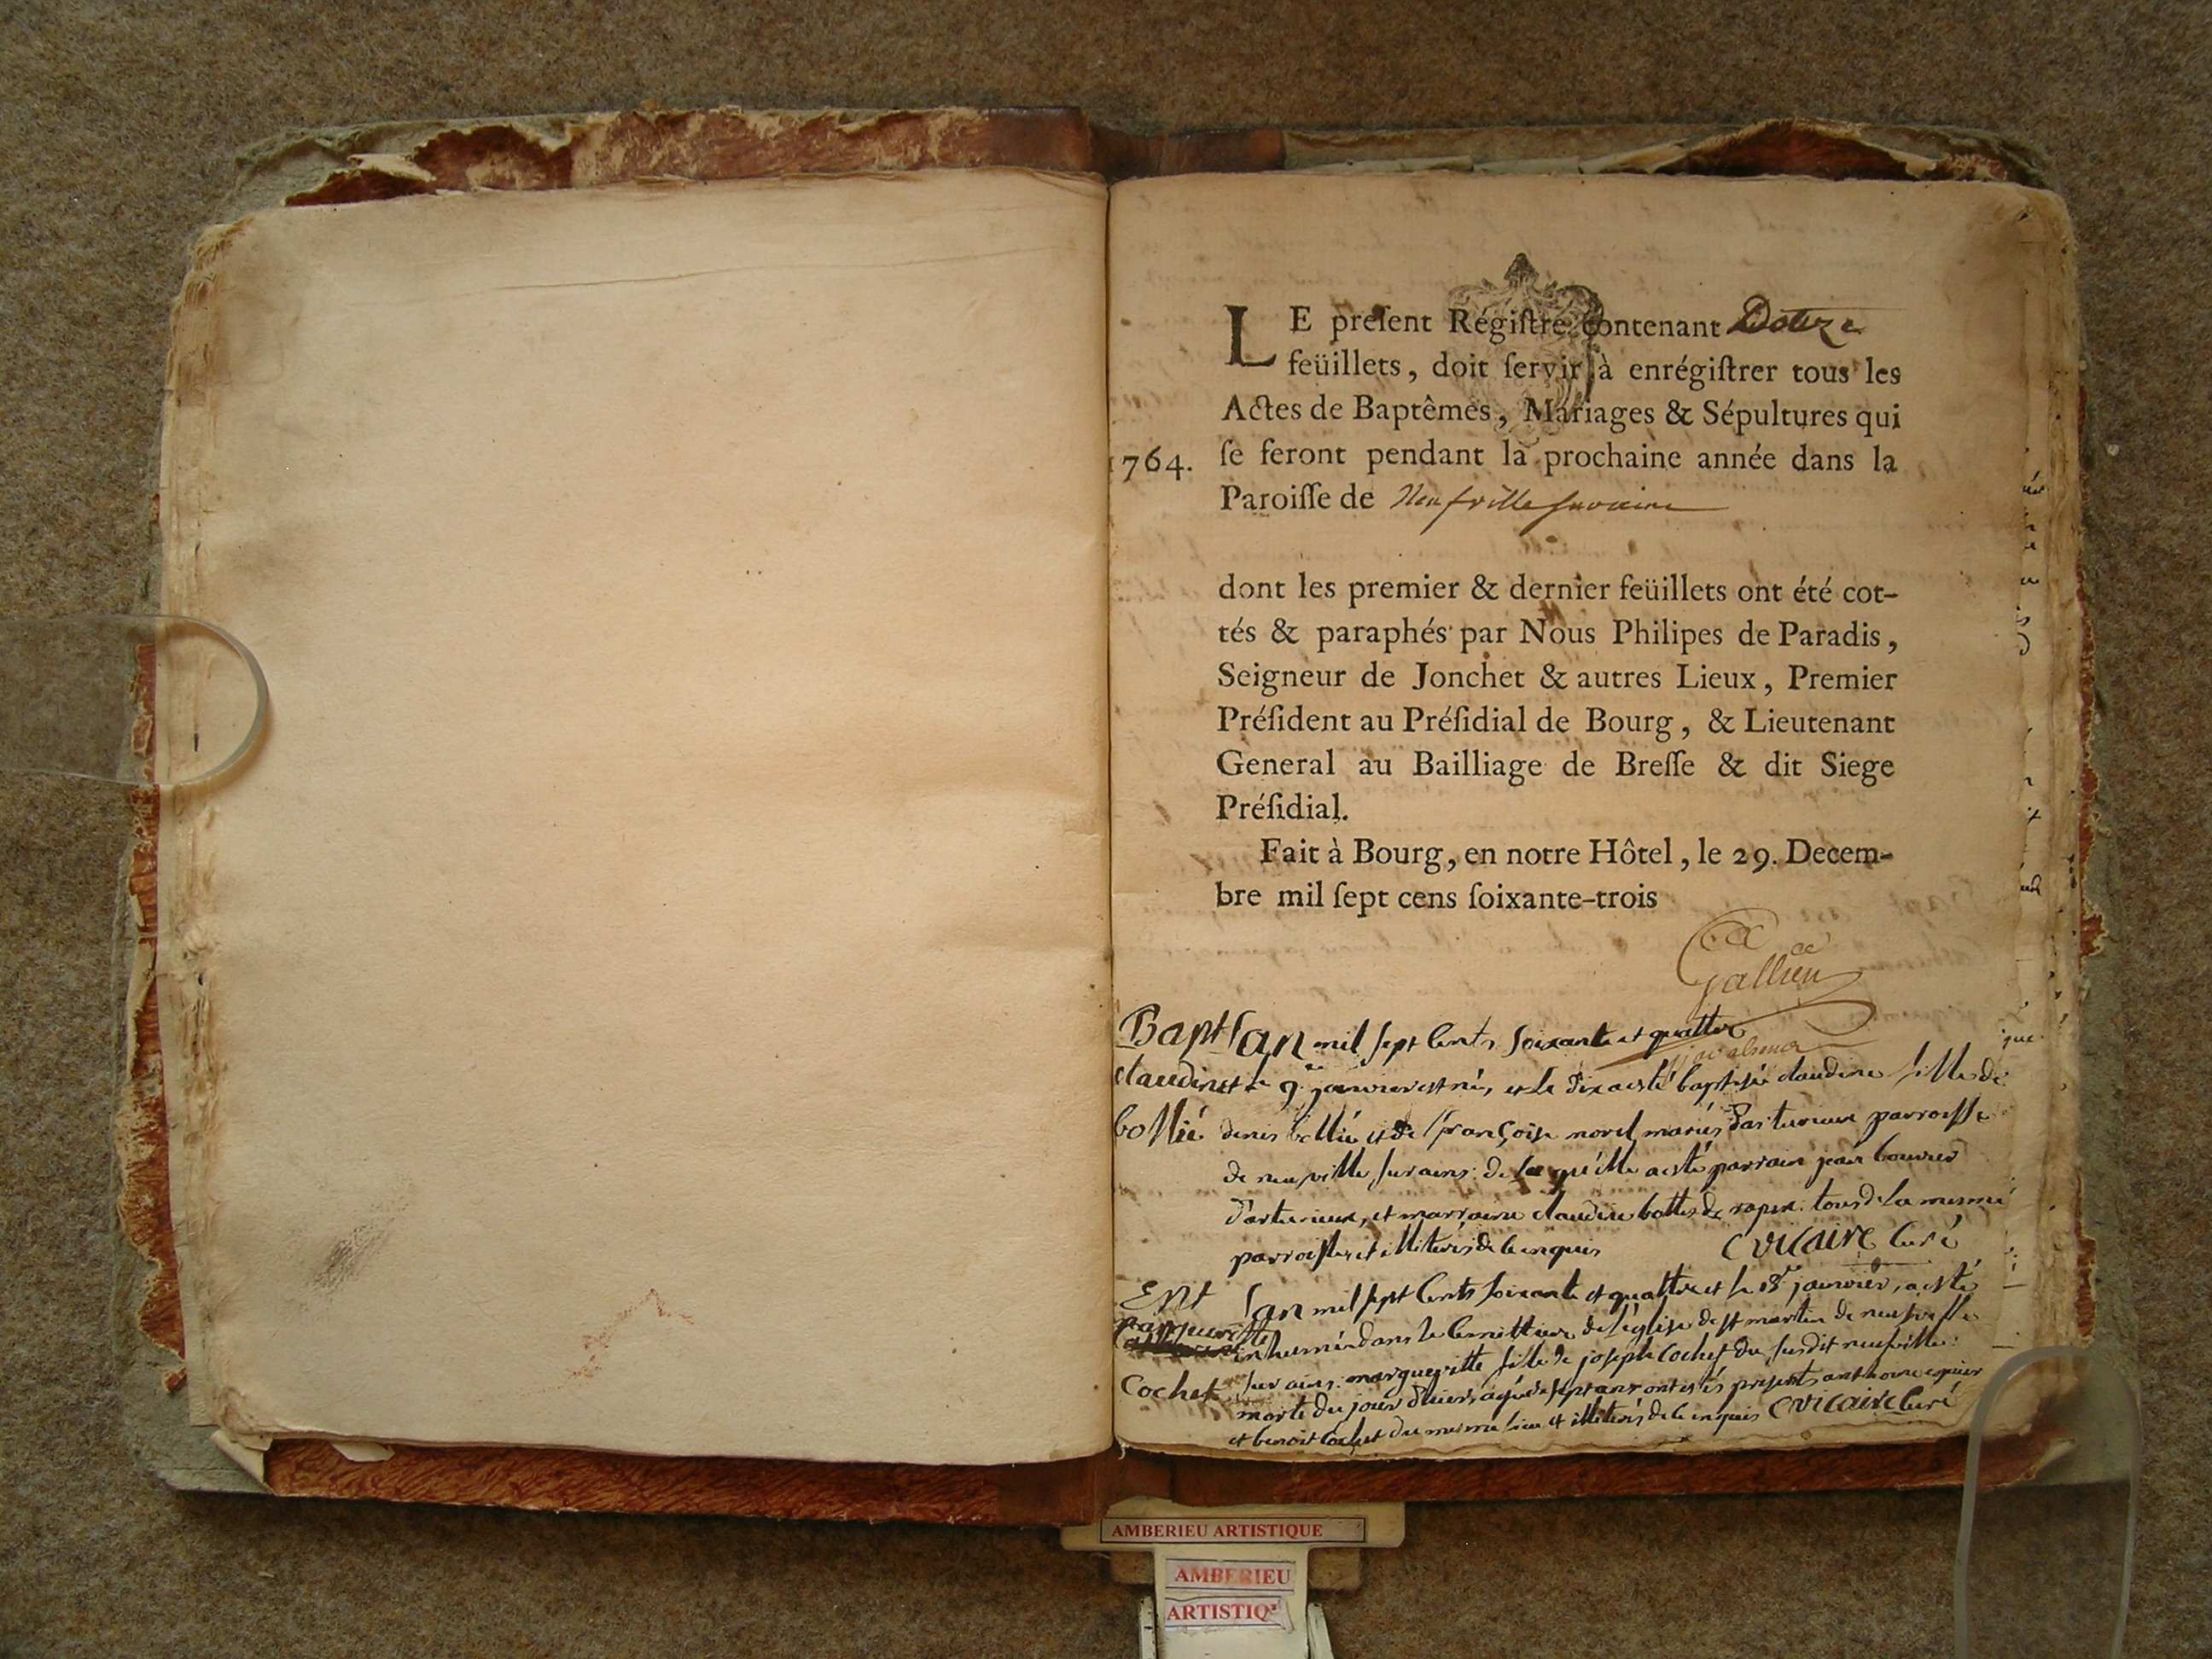 LE preſent Régiſtre contenant Douze
feüillets, doit ſervir à enrégiſtrer tous les
Actes de Baptêmes, Mariages & Sépultures qui
1764. ſe feront pendant la prochaine année dans la
Paroiſſe de Neufville
dont les premier & dernier feüillets ont été cot-
tés & paraphés par Nous Philipes de Paradis,
Seigneur de Jonchet & autres Lieux, Premier
Préſident au Préſidial de Bourg, & Lieutenant
General au Bailliage de Breſſe & dit Siege
Préſidial.
Fait à Bourg, en notre Hôtel, le 29. Decem-
bre mil ſept cens ſoixante-trois
Gallien
Bapt Lan mil sept cents soixante et quattre
claudine le 9e janvier est née, et le dix a esté baptisée claudine fille de
bollié denis bollié et de françoise morel mariés parroisse
de neufville sur ains: de laquelle a esté parrain jean bouvier
et marraine claudine de tous de la mesme
parroisse et illiterés de ce enquis C vicaire Curé
Ent Lan mil sept cents soixante et quattre et le 18e janvier, a esté
margueritte inhumée dans le cemettiere de l'église de st martin de neufville
sur ains: margueritte fille de joseph Cochet du susdit neufville:
Cochet morte du jour d'hier, agée de sept ans ont estés presents anthoine
et benoit Cochet du mesme lieu et illiterés de ce enquis C vicaire Curé
AMBERIEU ARTISTIQUE
AMBERIEU
ARTISTIQ